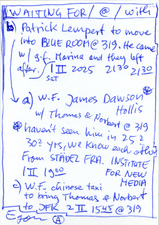 WAITING FOR/@/with
b) Patrick Lempert to move
into BLUE ROOM @ 319. He came
w/ g.f. Marine and they left
after. 1 II 2025 21 30 2130
SET
a) W.F. James Dawson
Hollis
w/ Thomas & Norbert @ 319
haven't seen him in 25?
30? yrs, we know each other
From STÄDEL FRA. INSTITUTE
FOR NEW
MEDIA
1 II 1900
c) W.F. chinese taxi
to bring Thomas & Norbert
to JFK 2 II 1545 @ 319
A